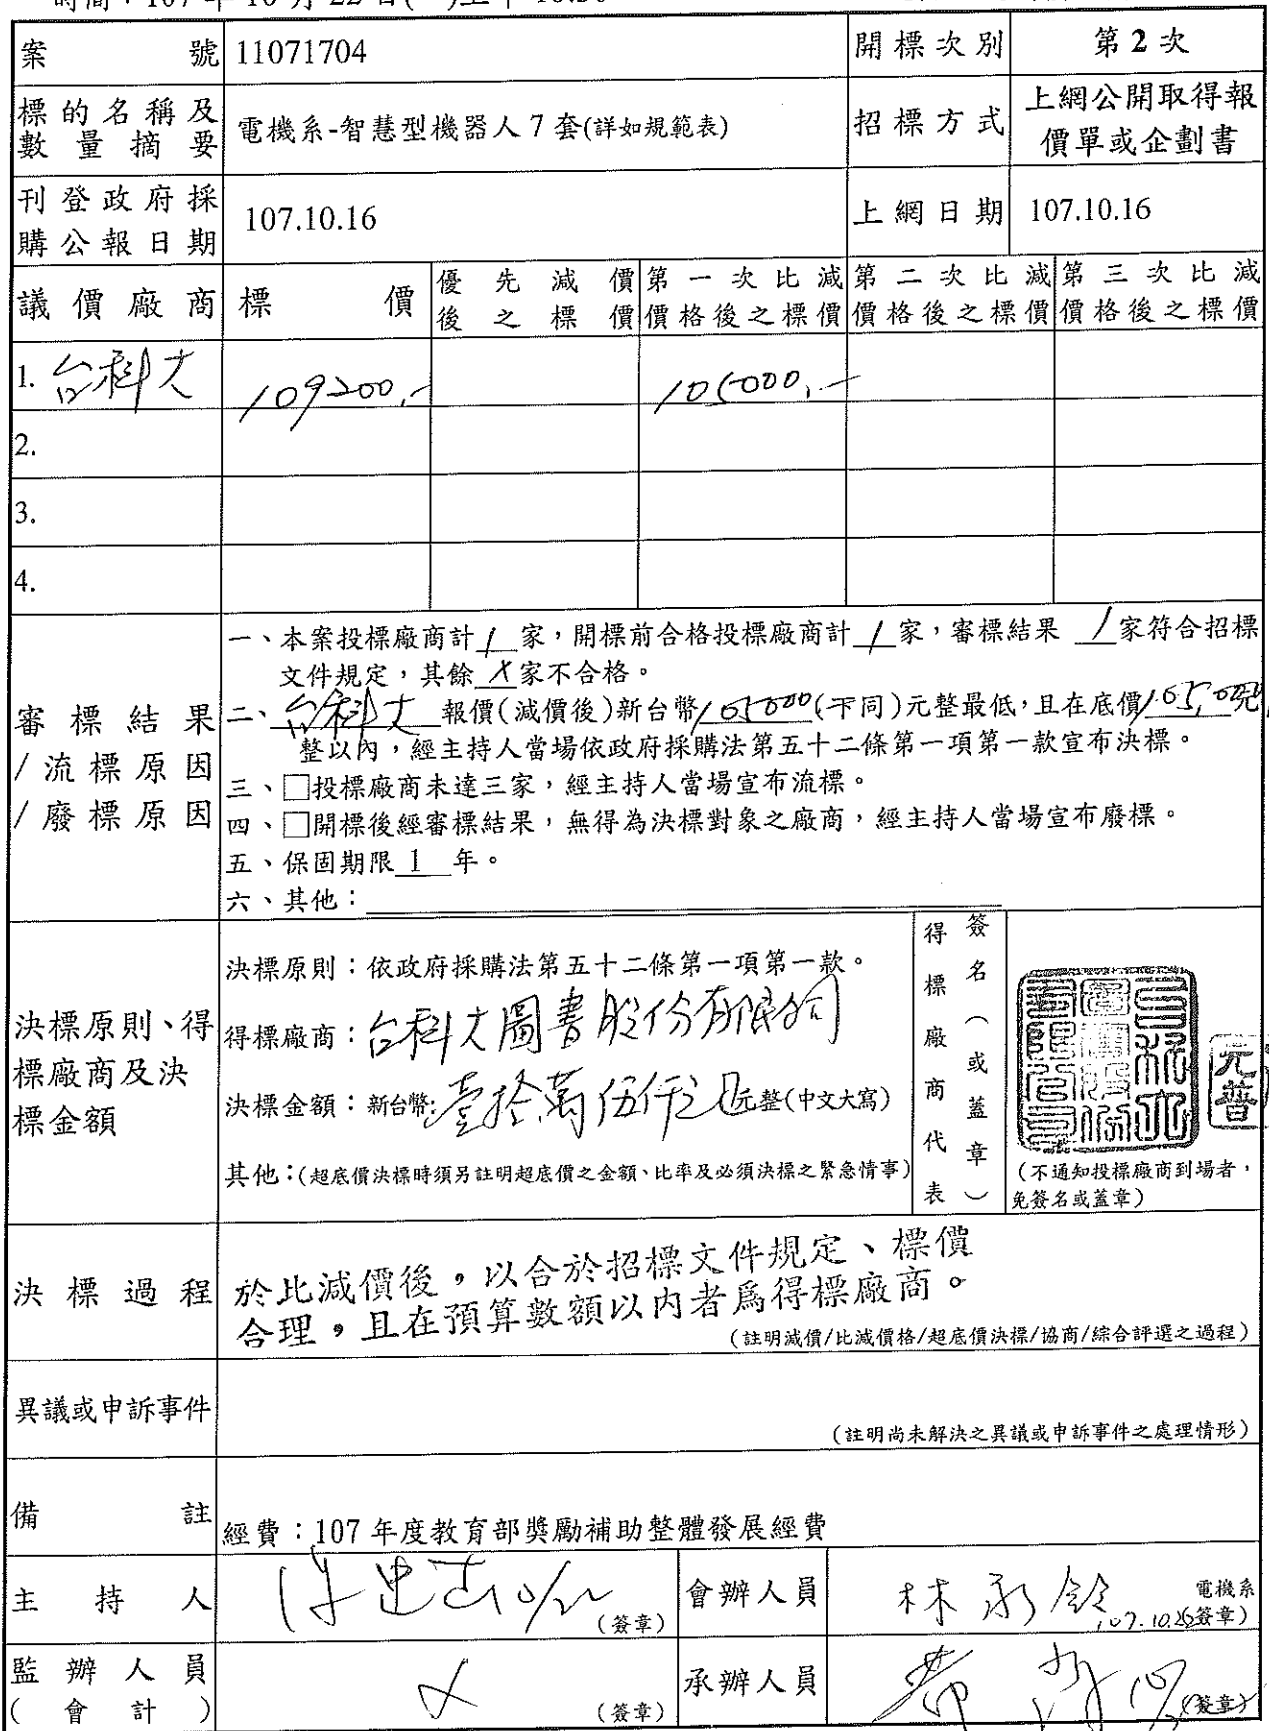 案號 11071704 開標次別 第 2 次
標的名稱及數量摘要 電機系-智慧型機器人 7 套(詳如規範表) 招標方式 上網公開取得報價單或企劃書
刊登政府採購公報日期 107.10.16 上網日期 107.10.16
議價廠商 標價 優先減價後之標價 第一次比減價格後之標價 第二次比減價格後之標價 第三次比減價格後之標價
1. 台科大 109200,- 105000,-
2.
3.
4.
審標結果/流標原因/廢標原因
一、本案投標廠商計 1 家，開標前合格投標廠商計 1 家，審標結果 1 家符合招標
文件規定，其餘 X 家不合格。
二、台科大 報價(減價後)新台幣 105000 (下同)元整最低，且在底價 105,000元
整以內，經主持人當場依政府採購法第五十二條第一項第一款宣布決標。
三、□投標廠商未達三家，經主持人當場宣布流標。
四、□開標後經審標結果，無得為決標對象之廠商，經主持人當場宣布廢標。
五、保固期限 1 年。
六、其他：
決標原則、得標廠商及決標金額
決標原則：依政府採購法第五十二條第一項第一款。
得標廠商：台科大圖書股份有限公司
決標金額：新台幣:壹拾萬伍仟元整(中文大寫)
其他：(超底價決標時須另註明超底價之金額、比率及必須決標之緊急情事)
得標廠商代表
簽名（或蓋章）
元普
(不通知投標廠商到場者，
免簽名或蓋章)
決標過程
於比減價後，以合於招標文件規定、標價
合理，且在預算數額以內者爲得標廠商。
(註明減價/比減價格/超底價決標/協商/綜合評選之過程)
異議或申訴事件
(註明尚未解決之異議或申訴事件之處理情形)
備註 經費：107 年度教育部獎勵補助整體發展經費
主持人 (簽章) 會辦人員 林永 電機系
107.10.22 (簽章)
監辦人員(會計) (簽章) 承辦人員 (簽章)